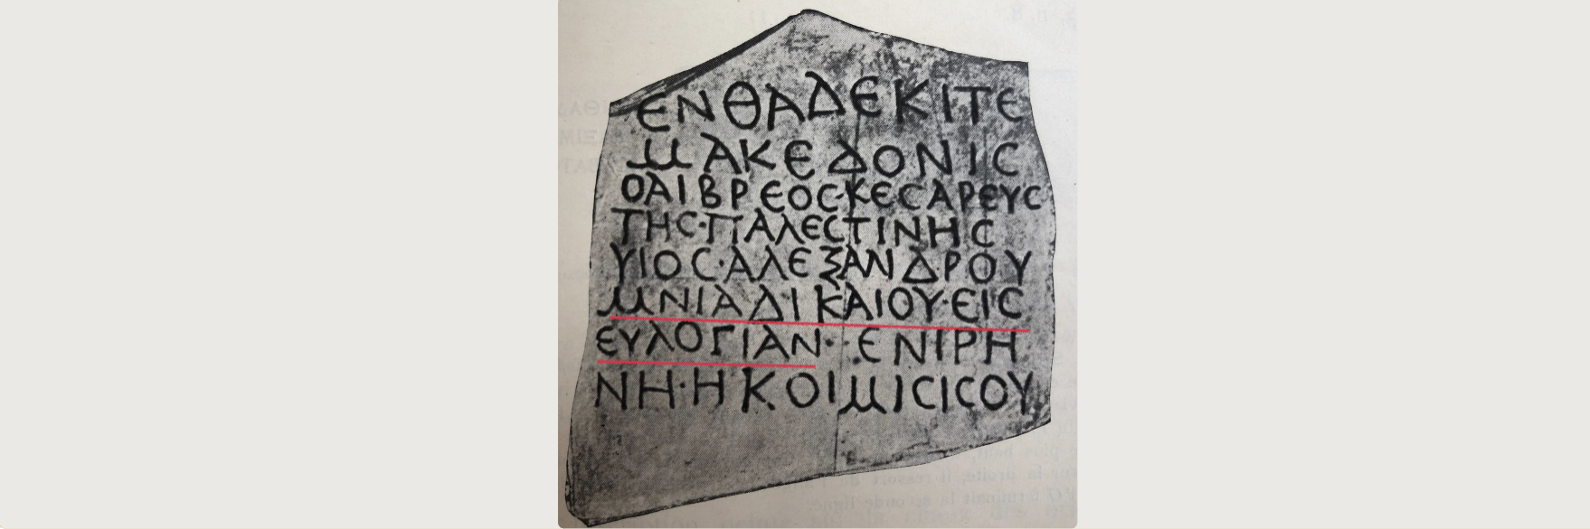 ΕΝΘΑΔΕΚΙΤΕ
ΜΑΚΕΔΟΝΙC
ΟΑΙΒΡΕΟC·ΚΕCΑΡΕΥC
ΤΗC·ΠΑΛΕCΤΙΝΗC
ΥΙΟC·ΑΛΕΞΑΝΔΡΟΥ
ΜΝΙΑΔΙΚΑΙΟΥ·ΕΙC
ΕΥΛΟΓΙΑΝ··ΕΝΙΡΗ
ΝΗ·ΗΚΟΙΜΙCΙCΟΥ